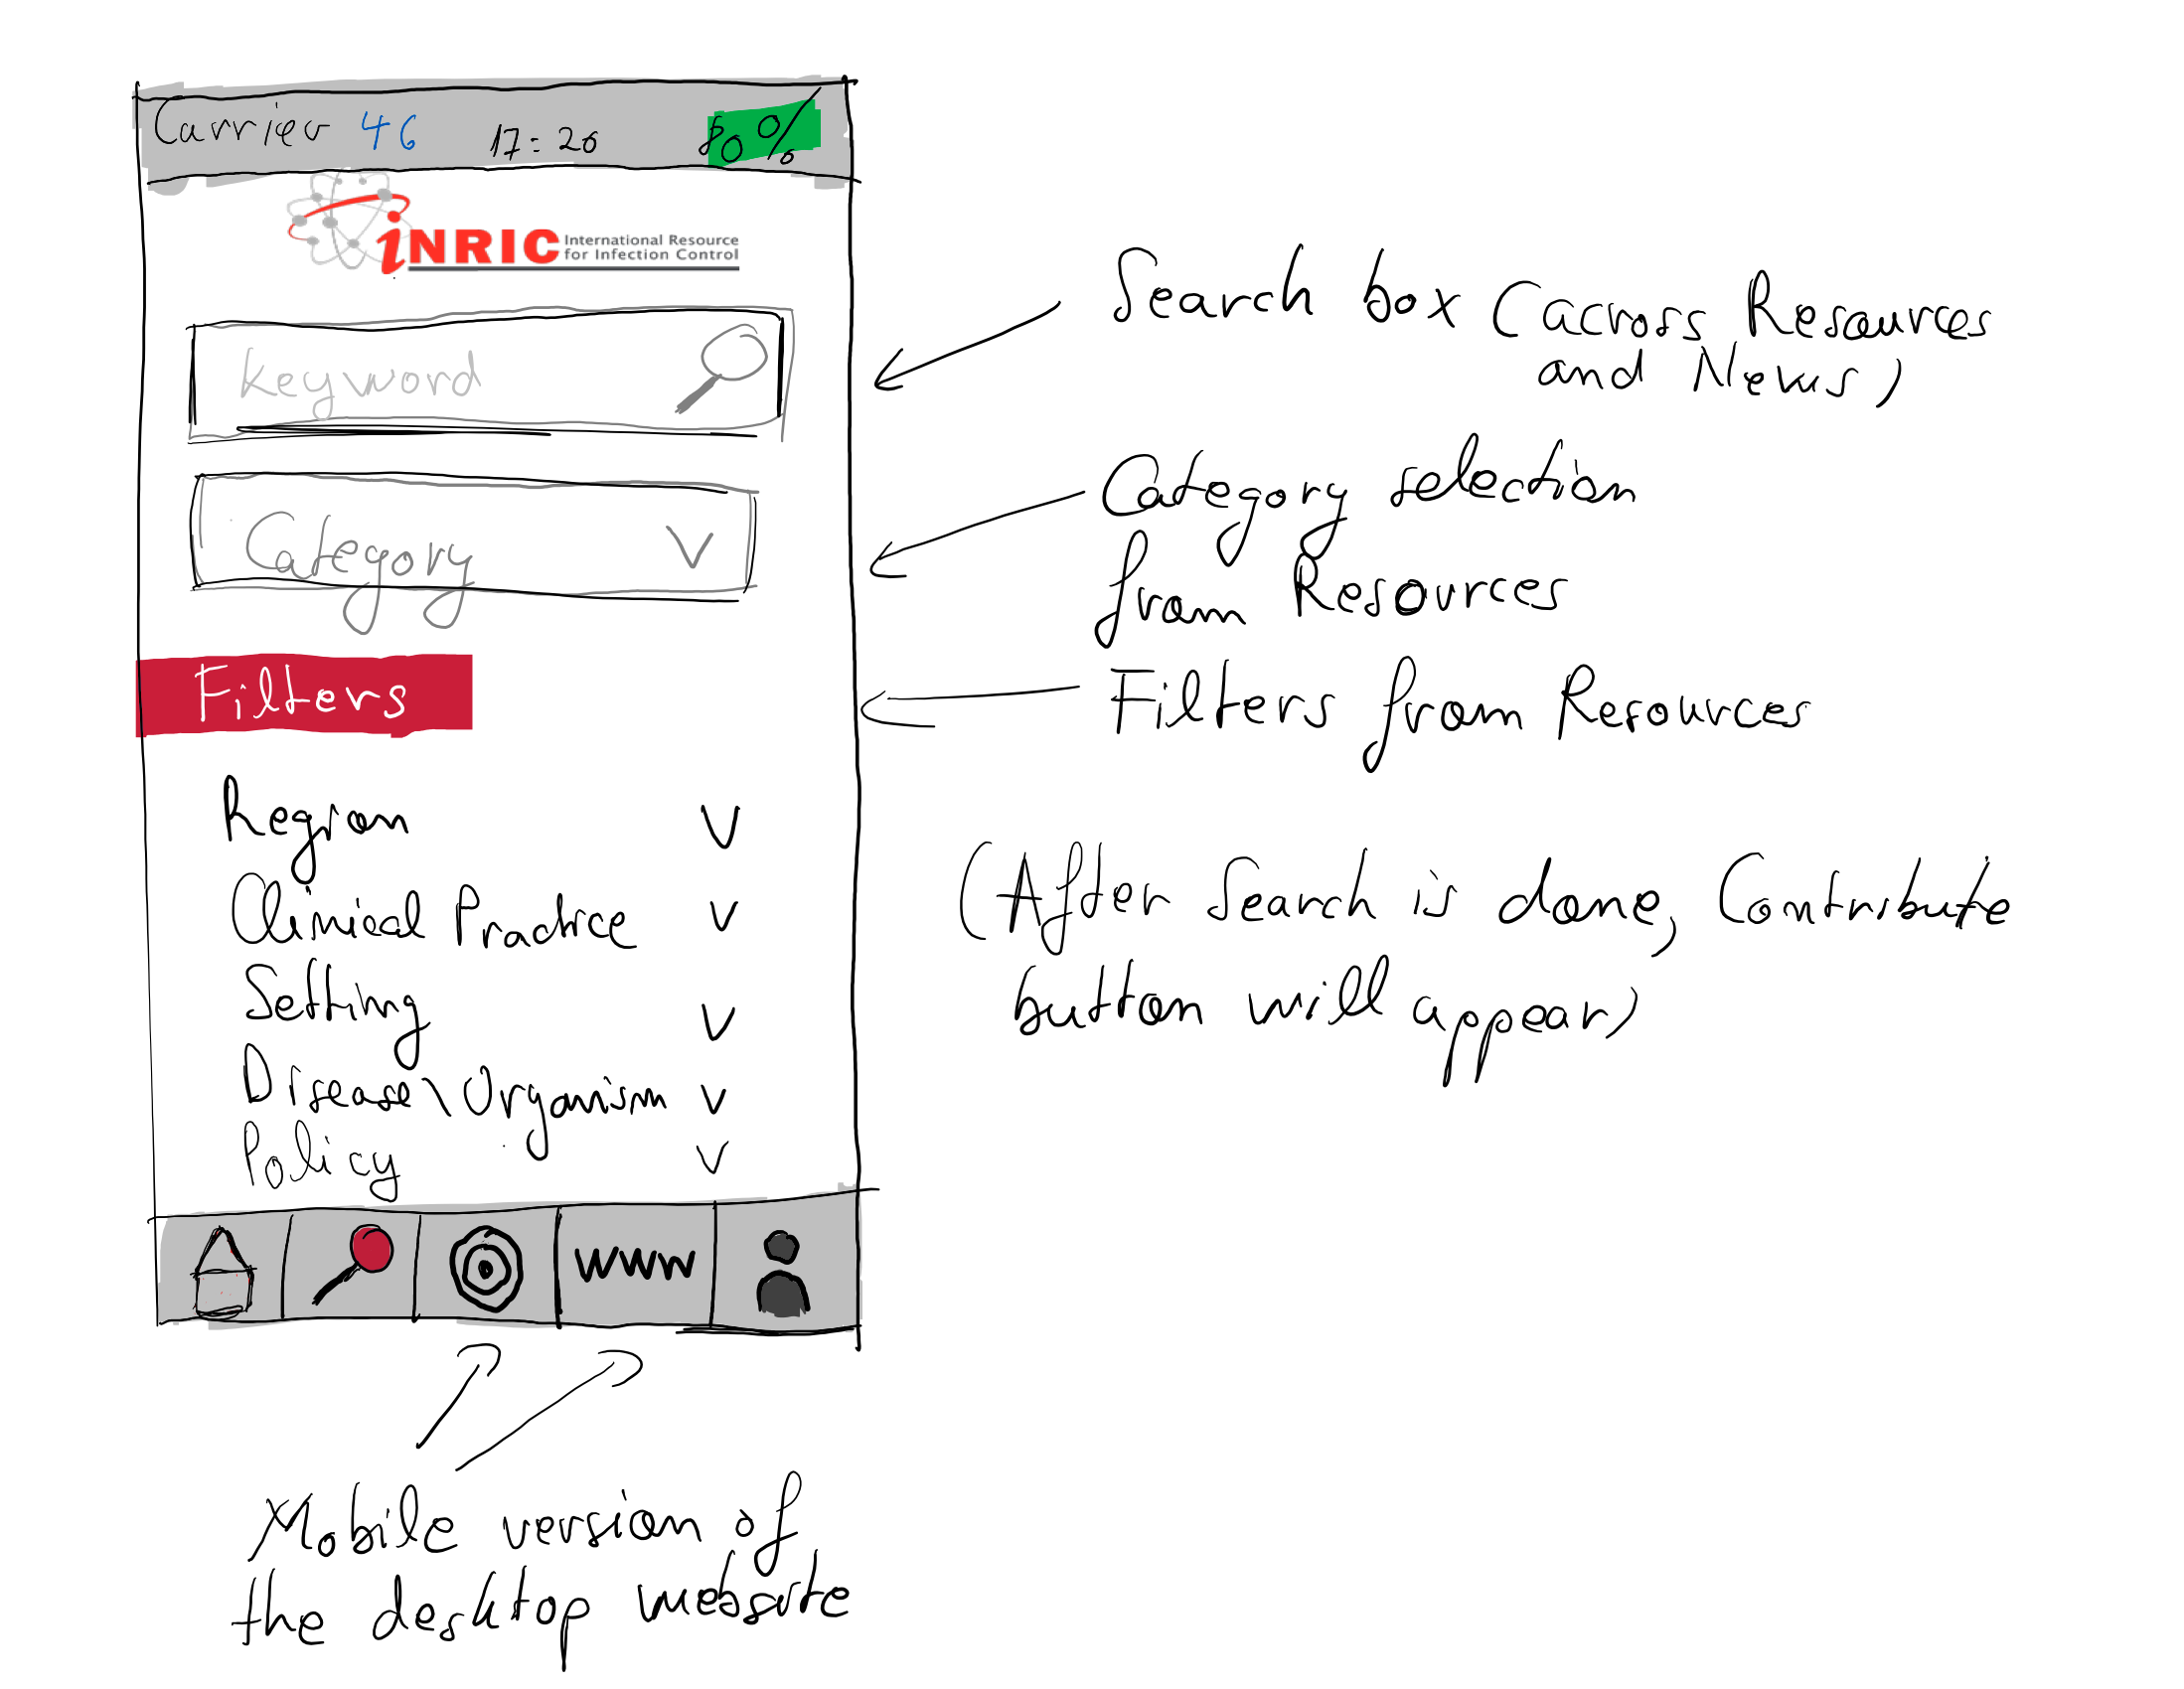 Carrier 4G 17:26 80%
iNRIC International Resource
for Infection Control
Keyword
Category
Filters
Region
Clinical Practice
Setting
Disease\Organism
Policy
www
Search box (accross Resources
and News)
Category selection
from Resources
Filters from Resources
(After Search is done, Contribute
button will appear)
Mobile version of
the desktop website